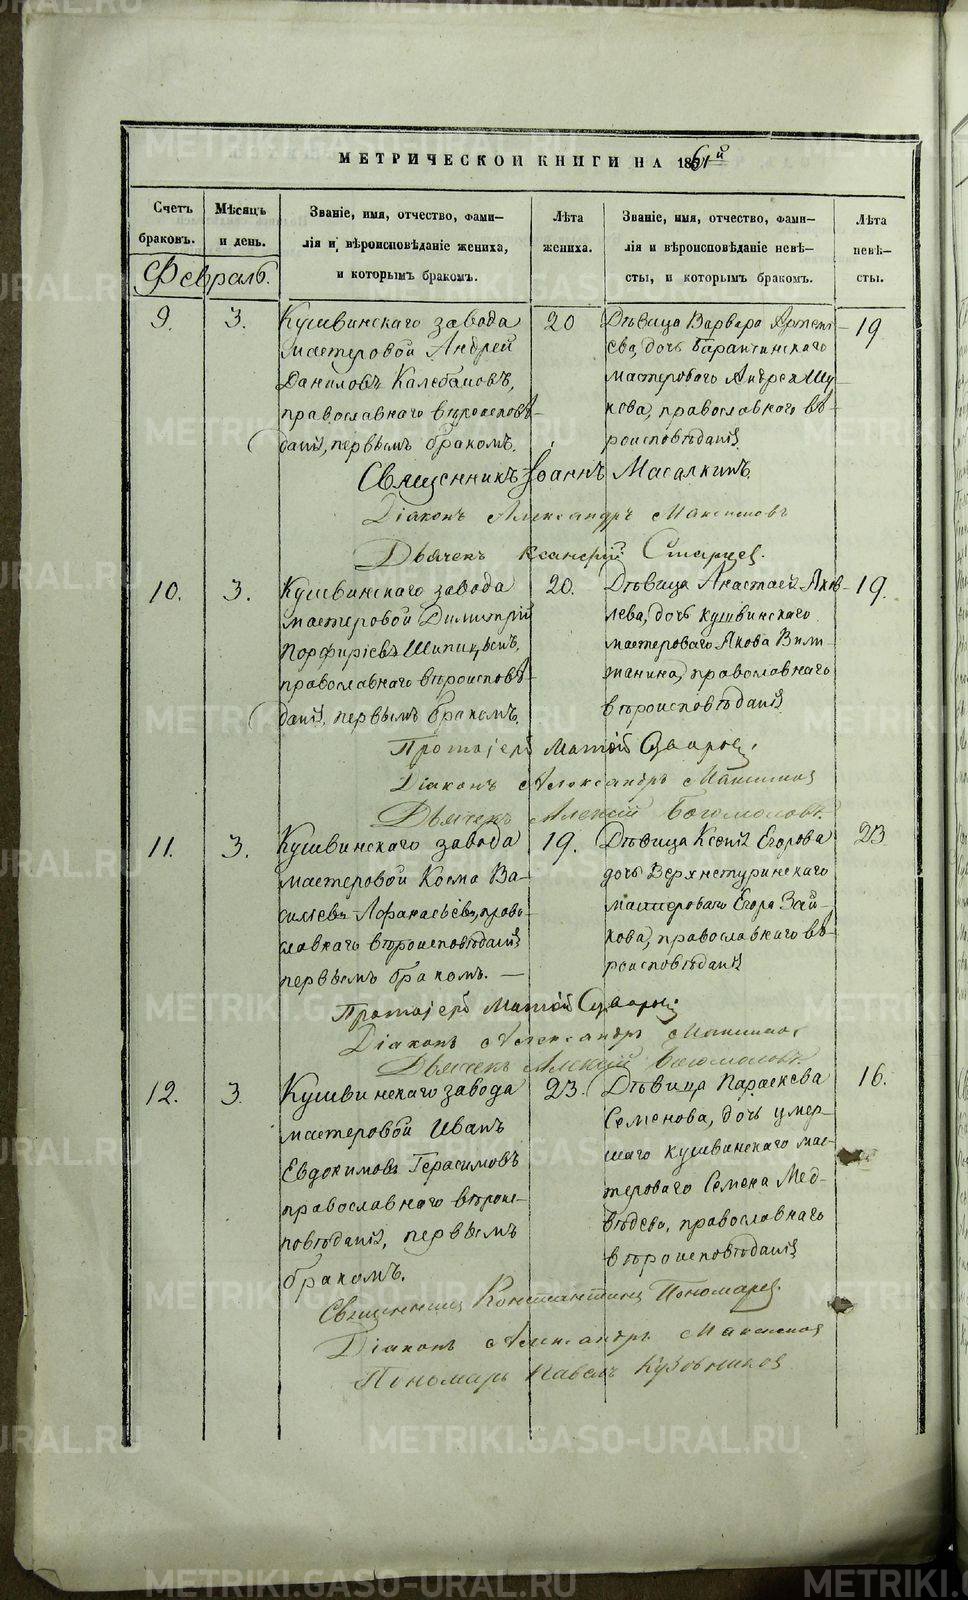 МЕТРИЧЕСКОЙ КНИГИ НА 1861й
Счетъ браковъ.
Мѣсяцъ и день.
Званіе, имя, отчество, фами-
лія и вѣроисповѣданіе жениха,
и которымъ бракомъ.
Лѣта жениха.
Званіе, имя, отчество, фами-
лія и вѣроисповѣданіе невѣ-
сты, и которымъ бракомъ.
Лѣта невѣ-
сты.
Февраль.
9. 3.
Кушвинскаго завода
мастеровой Андрей
Даниловъ
православнаго вѣроисповѣ-
данія, первымъ бракомъ.
20
Дѣвица Варвара
ева, дочь Баранчинскаго
мастероваго Андрея Шу
кова, православнаго вѣ-
роисповѣданія
19
Священникъ Іоаннъ Масалкинъ.
Діаконъ Александръ Максимовъ
Дьячекъ Старцев.
10. 3.
Кушвинскаго завода
мастеровой Димитрій
Порфиріевъ Шипицынъ,
православнаго вѣроисповѣ-
данія, первымъ бракомъ,
20.
Дѣвица Анастасія Яков-
лева, дочь кушвинскаго
мастероваго Якова
православнаго
вѣроисповѣданія
19.
Протоіерей
Діаконъ Александръ Максимов
Дьячекъ Алексій Богомоловъ.
11. 3.
Кушвинскаго завода
мастеровой Косма Ва-
силіевъ Афанасьевъ, право-
славнаго вѣроисповѣданія
первымъ бракомъ. —
19.
Дѣвица Ксенія Егорова
дочь Верхнетуринскаго
мастероваго Егора Зай-
кова, православнаго вѣ-
роисповѣданія
23
Протоіерей
Діаконъ Александръ Максимов
Дьячекъ Алексій Богомоловъ.
12. 3.
Кушвинскаго завода
мастеровой Иванъ
Евдокимовъ Герасимовъ
православнаго вѣроис-
повѣданія, первымъ
бракомъ.
23.
Дѣвица Параскева
Семенова, дочь умер-
шаго кушвинскаго мас-
тероваго Семена Мед-
вѣдева, православнаго
вѣроисповѣданія
16.
Священникъ Константинъ Пономарев.
Діаконъ Александръ Максимов
Пономарь Павелъ Кузовников
METRIKI.GASO-URAL.RU